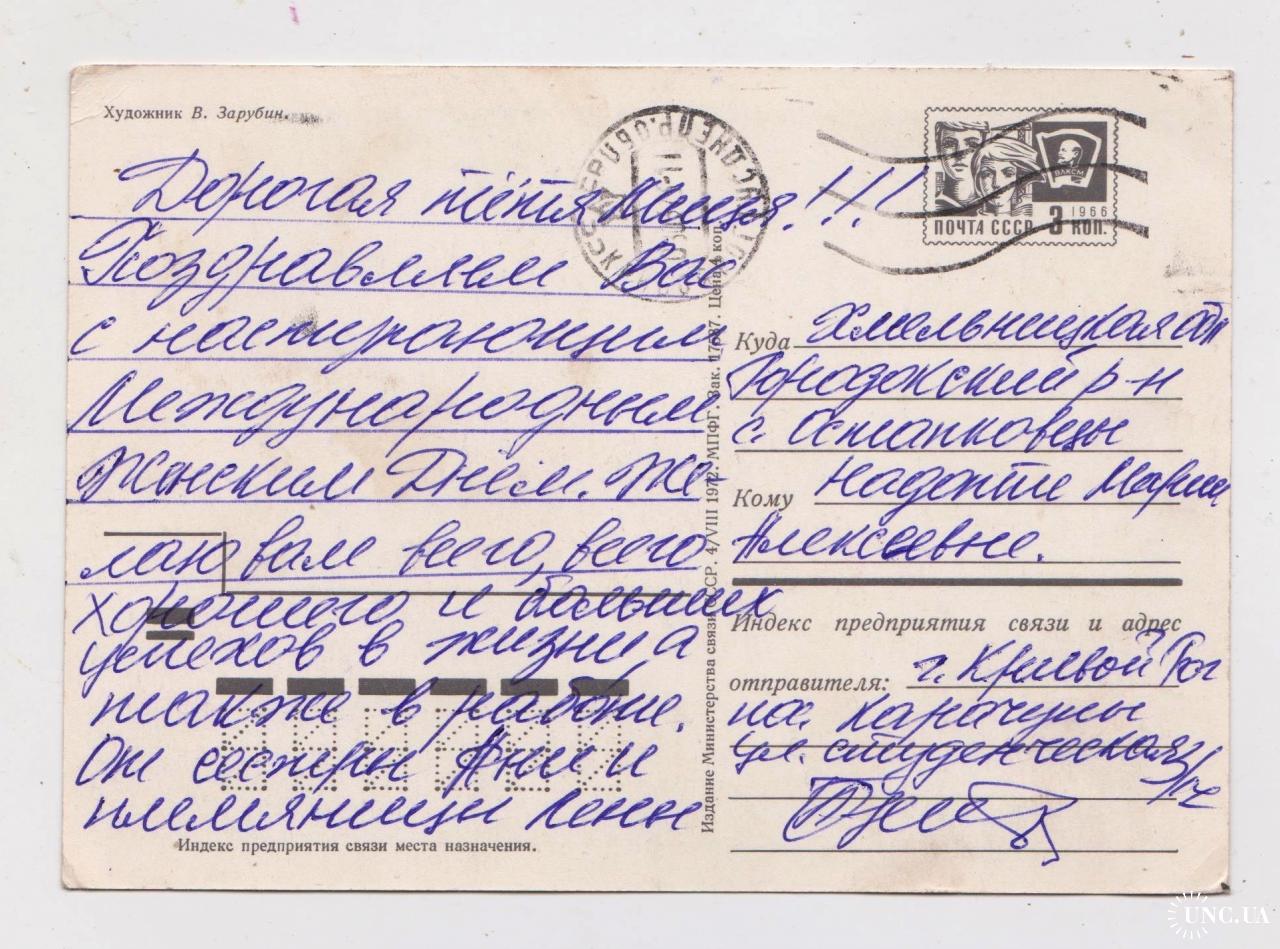 Художник В. Зарубин.
Дорогая тётя Миля!!!
Поздравляем Вас
с наступающим
Международным
Женским Днём. Же
лаю вам всего, всего
хорошего и больших
успехов в жизни а
также в работе.
От сестры Ани и
племянницы Лены
Индекс предприятия связи места назначения.
Издание Министерства связи СССР. 4/VIII 1972. МПФГ. Зак. 17587. Цена 4 коп.
ВЛКСМ
1966
ПОЧТА СССР 3 КОП.
Куда Хмельницкая обл
Городокский р-н
с. Остапковцы
Кому Марии
Алексеевне.
Индекс предприятия связи и адрес
отправителя: г. Кривой Рог
пос. Карачуны
ул. студенческая
UNC.UA